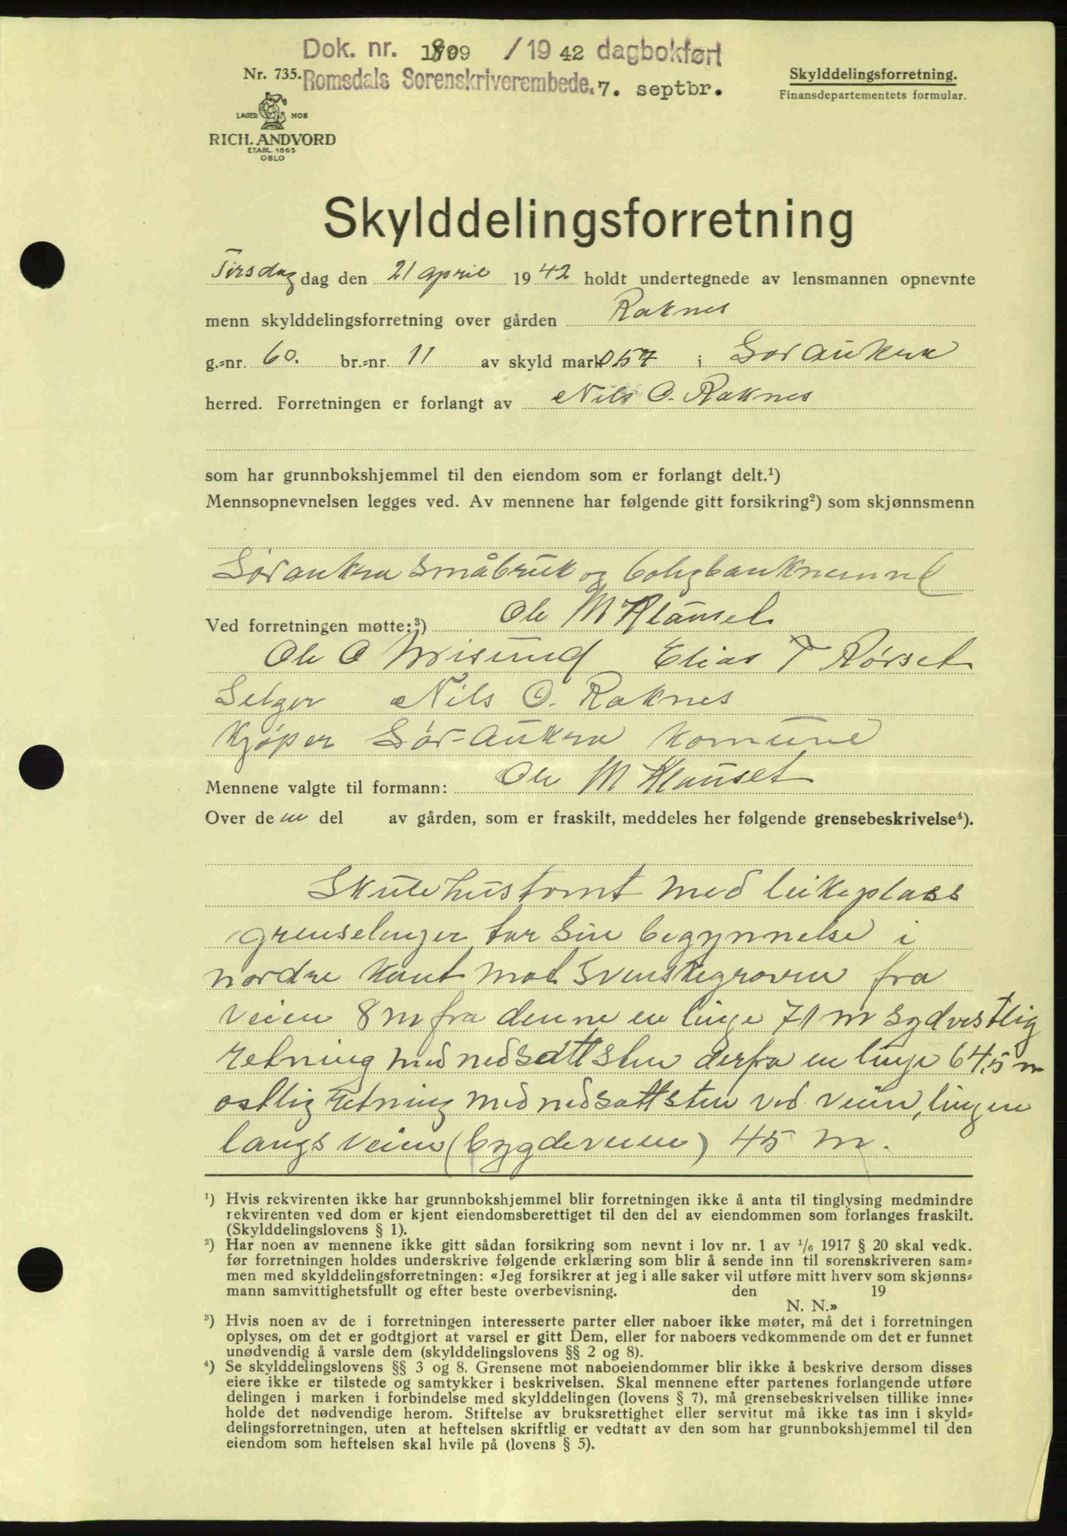 Dok. nr. 1809 /19 42 dagbokført
Nr. 735. Romsdals Sorenskriverembede. 7. septbr.
Skylddelingsforretning.
Finansdepartementets formular.
LAGER HOS
RICH. ANDVORD
ETABL. 1865
OSLO
Skylddelingsforretning
Tirsdag dag den 21 april 19 42 holdt undertegnede av lensmannen opnevnte
menn skylddelingsforretning over gården Raknes
g.=nr. 60. br.=nr. 11 av skyld mark 0.57 i Sør Aukra
herred. Forretningen er forlangt av Nils O. Raknes
som har grunnbokshjemmel til den eiendom som er forlangt delt.¹)
Mennsopnevnelsen legges ved. Av mennene har følgende gitt forsikring²) som skjønnsmenn
Sør aukra Småbruk og boligbanknemnd
Ved forretningen møtte:³) Ole M Klauset
Ole O Misund Elias T Rørset
Selger Nils O. Raknes
Kjøper Sør-Aukra Komune
Mennene valgte til formann: Ole M Klauset
Over de en del av gården, som er fraskilt, meddeles her følgende grensebeskrivelse⁴).
Skulehustomt med leikeplass
grenselinjer tar sin begynnelse i
nordre kant mot Svenskegroven fra
veien 8 m fra denne en linje 71 m sydvestlig
retning med nedsatt sten derfra en linje 64,5 m
østlig retning med nedsatt sten ved veien, linjen
langs veien (bygdeveien) 45 m.
¹) Hvis rekvirenten ikke har grunnbokshjemmel blir forretningen ikke å anta til tinglysing medmindre
rekvirenten ved dom er kjent eiendomsberettiget til den del av eiendommen som forlanges fraskilt.
(Skylddelingslovens § 1).
²) Har noen av mennene ikke gitt sådan forsikring som nevnt i lov nr. 1 av ¹/₆ 1917 § 20 skal vedk.
før forretningen holdes underskrive følgende erklæring som blir å sende inn til sorenskriveren sam=
men med skylddelingsforretningen: «Jeg forsikrer at jeg i alle saker vil utføre mitt hverv som skjønns=
mann samvittighetsfullt og efter beste overbevisning. den 19
N. N.»
³) Hvis noen av de i forretningen interesserte parter eller naboer ikke møter, må det i forretningen
oplyses, om det er godtgjort at varsel er gitt Dem, eller for naboers vedkommende om det er funnet
unødvendig å varsle dem (skylddelingslovens §§ 2 og 8).
⁴) Se skylddelingslovens §§ 3 og 8. Grensene mot naboeiendommer blir ikke å beskrive dersom disses
eiere ikke er tilstede og samtykker i beskrivelsen. Skal mennene efter partenes forlangende utføre
delingen i marken i forbindelse med skylddelingen (lovens § 7), må grensebeskrivelsen tillike inne=
holde det nødvendige herom. Stiftelse av bruksrettighet eller servitut må ikke tas inn i skyld=
delingsforretningen, uten at heftelsen skriftlig er vedtatt av den som har grunnbokshjemmel til den
eiendom som heftelsen skal hvile på (lovens § 5).